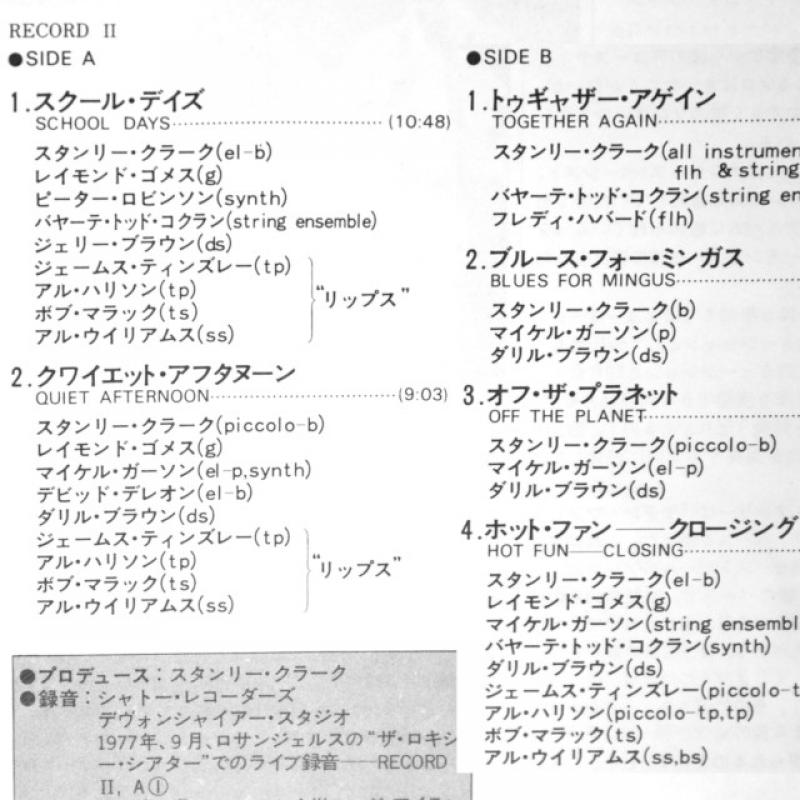 RECORD II
●SIDE A
1.スクール・デイズ
SCHOOL DAYS………………………(10:48)
スタンリー・クラーク(el-b)
レイモンド・ゴメス(g)
ピーター・ロビンソン(synth)
バヤーテ・トッド・コクラン(string ensemble)
ジェリー・ブラウン(ds)
ジェームス・ティンズレー(tp)
アル・ハリソン(tp)
ボブ・マラック(ts)
アル・ウイリアムス(ss)
“リップス”
2.クワイエット・アフタヌーン
QUIET AFTERNOON………………………(9:03)
スタンリー・クラーク(piccolo-b)
レイモンド・ゴメス(g)
マイケル・ガーソン(el-p,synth)
デビッド・デレオン(el-b)
ダリル・ブラウン(ds)
ジェームス・ティンズレー(tp)
アル・ハリソン(tp)
ボブ・マラック(ts)
アル・ウイリアムス(ss)
“リップス”
●プロデュース：スタンリー・クラーク
●録音：シャトー・レコーダーズ
デヴォンシャイアー・スタジオ
1977年、9月、ロサンジェルスの“ザ・ロキシ
ー・シアター”でのライブ録音──RECORD
II, A①
●SIDE B
1.トゥギャザー・アゲイン
TOGETHER AGAIN………………
スタンリー・クラーク(all instrumen
flh & string
バヤーテ・トッド・コクラン(string en
フレディ・ハバード(flh)
2.ブルース・フォー・ミンガス
BLUES FOR MINGUS………………
スタンリー・クラーク(b)
マイケル・ガーソン(p)
ダリル・ブラウン(ds)
3.オフ・ザ・プラネット
OFF THE PLANET………………
スタンリー・クラーク(piccolo-b)
マイケル・ガーソン(el-p)
ダリル・ブラウン(ds)
4.ホット・ファン──クロージング
HOT FUN──CLOSING………………
スタンリー・クラーク(el-b)
レイモンド・ゴメス(g)
マイケル・ガーソン(string ensembl
バヤーテ・トッド・コクラン(synth)
ダリル・ブラウン(ds)
ジェームス・ティンズレー(piccolo-t
アル・ハリソン(piccolo-tp,tp)
ボブ・マラック(ts)
アル・ウイリアムス(ss,bs)